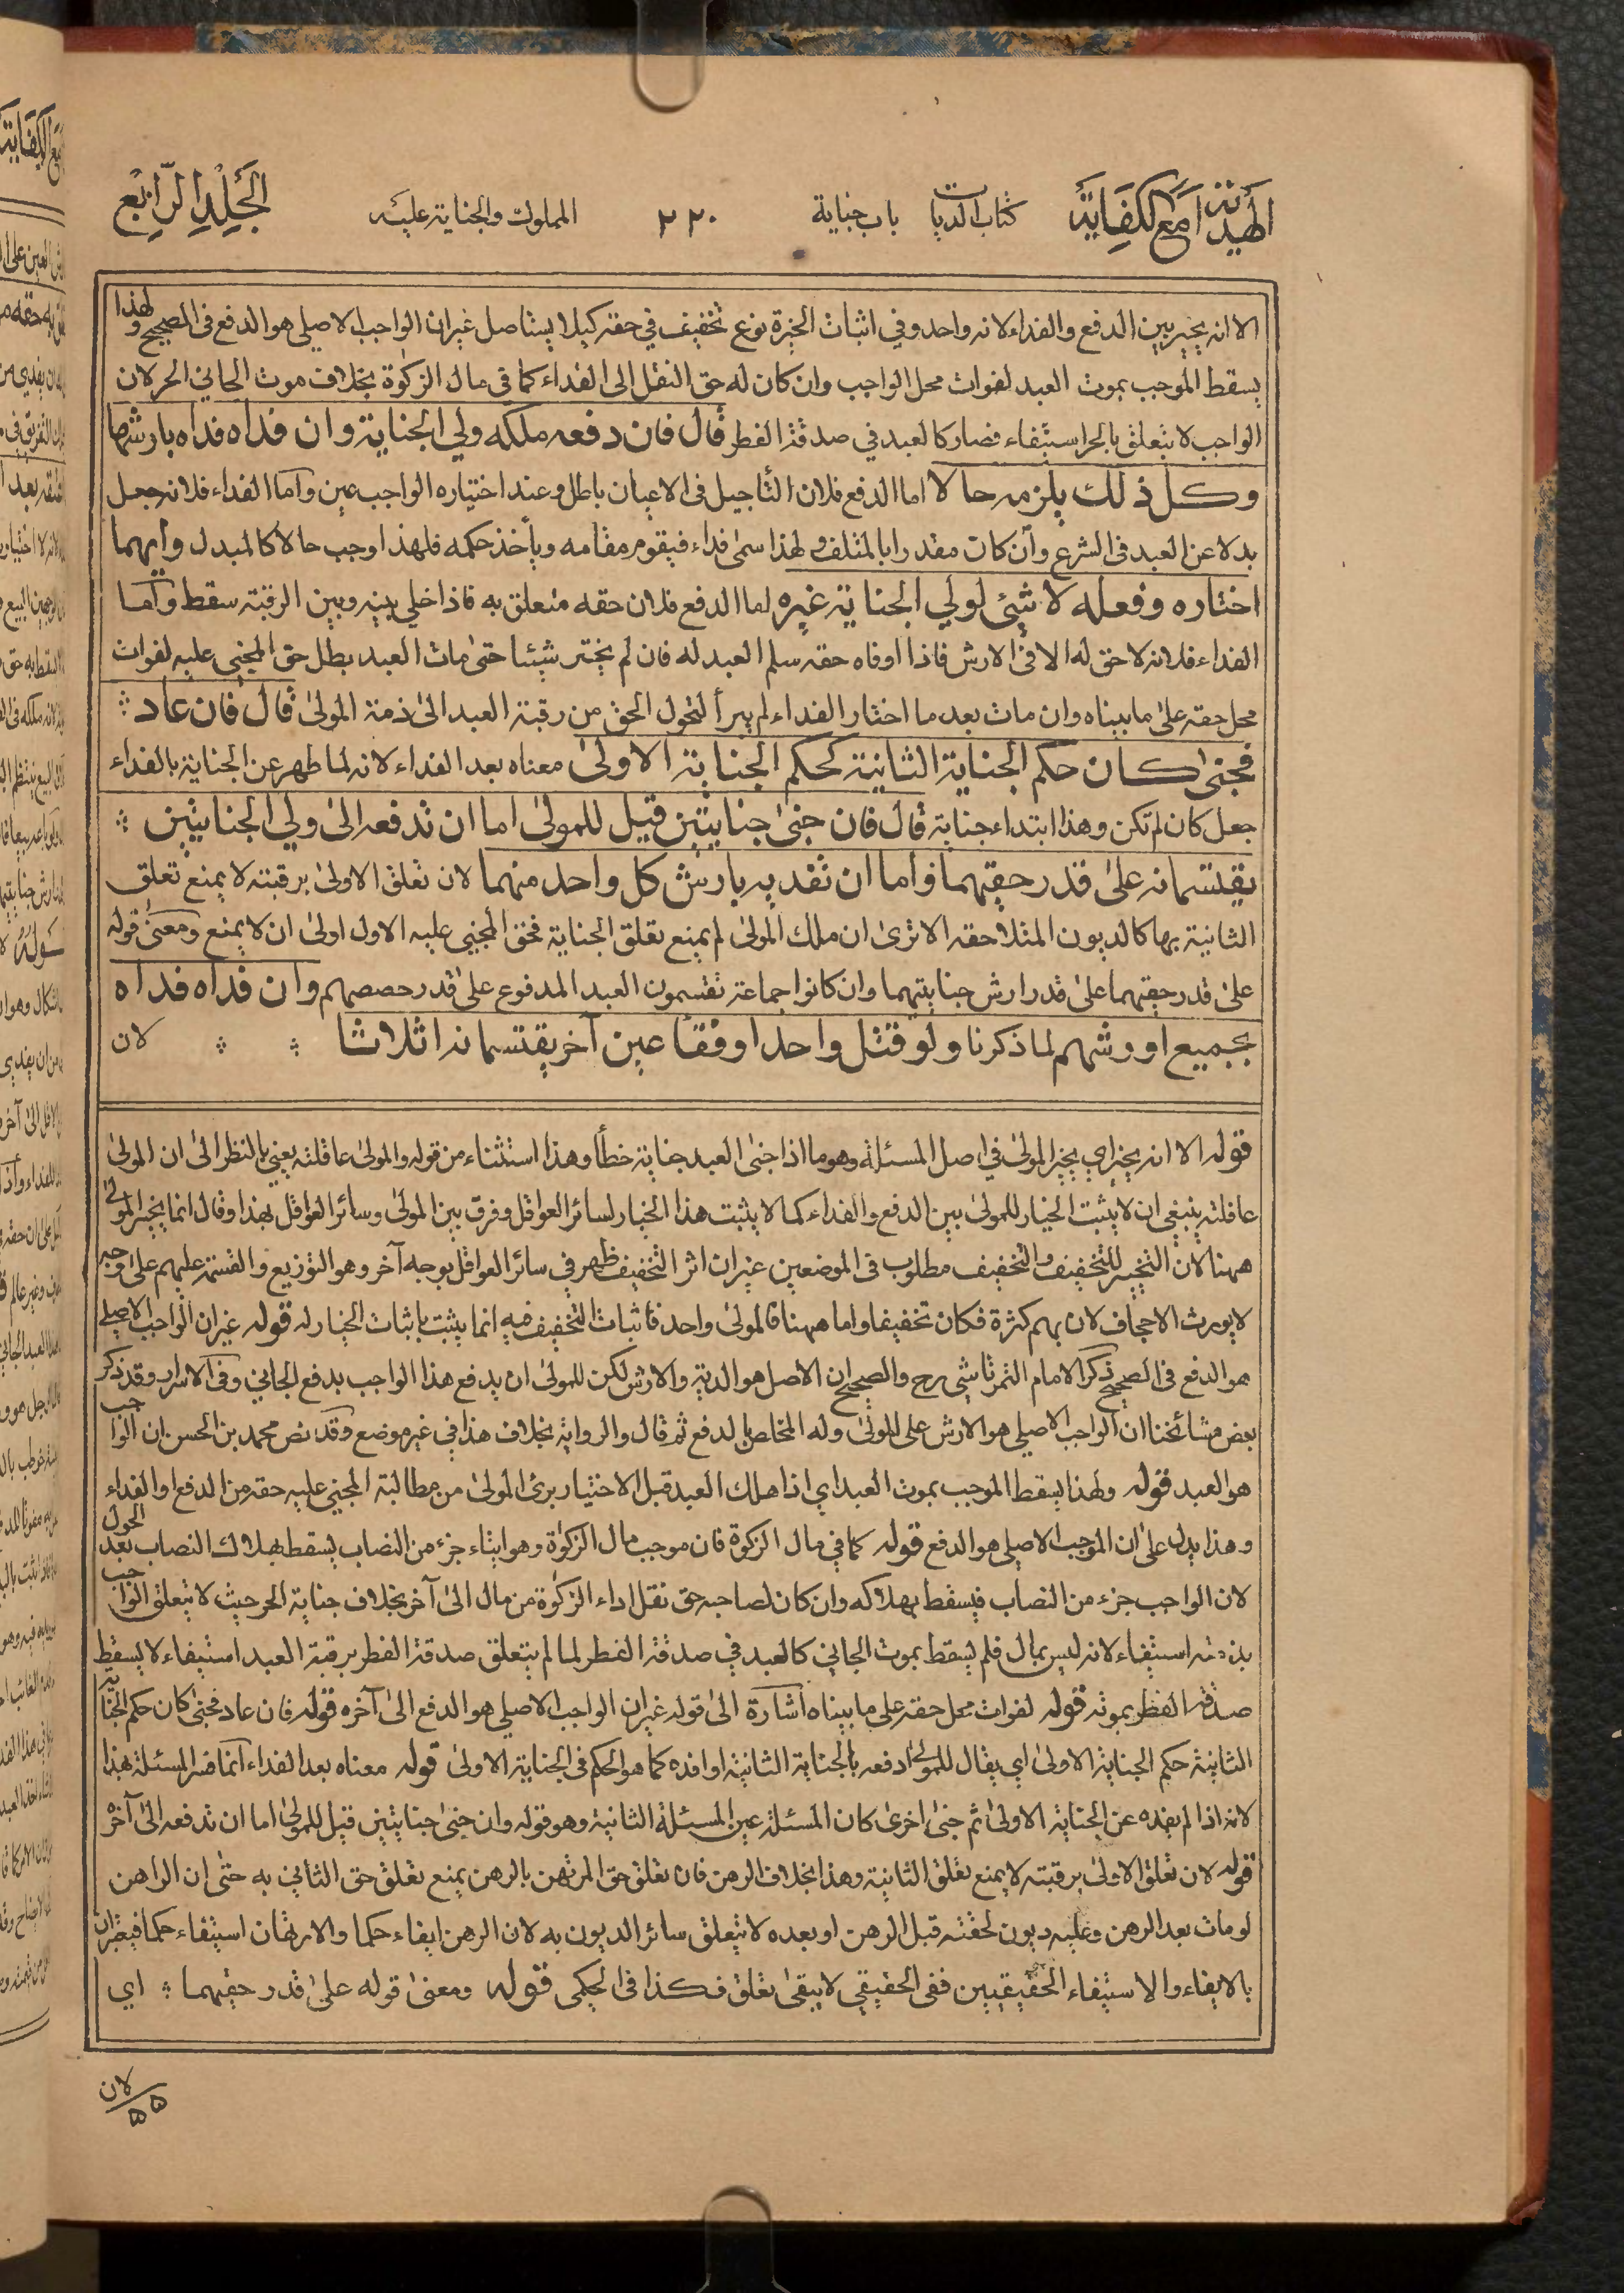 الهداية مع الكفاية
كتاب الديات
باب جناية
٢٢٠
المملوك والجناية عليه
الجلد الرابع
الا انه يخير بين الدفع والفداء لانه واحد وفي اثبات الخيرة نوع تخفيف في حقه كيلا يستاصل غير ان الواجب الاصلي هو الدفع في الصحيح ولهذا
يسقط الموجب بموت العبد لفوات محل الواجب وان كان له حق النقل الى الفداء كما في مال الزكوة بخلاف موت الجاني الحر لان
الواجب لا يتعلق بالحر استيفاء فصار كالعبد في صدقة الفطر قال فان دفعه ملكه ولي الجناية وان فداه فداه بارشها
وكل ذلك يلزمه حالا اما الدفع فلان التأجيل في الاعيان باطل وعند اختياره الواجب عين وآما الفداء فلانه جعل
بدلا عن العبد في الشرع وان كان مقدرا بالمتلف ولهذا سمى فداء فيقوم مقامه ويأخذ حكمه فلهذا وجب حالا كالمبدل وايهما
اختاره وفعله لا شيئ لولي الجناية غيره اما الدفع فلان حقه متعلق به فاذا خلي بينه وبين الرقبة سقط وآما
الفداء فلانه لا حق له الا في الارش فاذا اوفاه حقه سلم العبد له فان لم يختر شيئا حتى مات العبد بطل حق المجني عليه لفوات
محل حقه على ما بيناه وان مات بعد ما اختار الفداء لم يبرأ لتحول الحق من رقبة العبد الى ذمة المولى قال فان عاد
فجنى كان حكم الجناية الثانية كحكم الجناية الاولى معناه بعد الفداء لانه لما طهر عن الجناية بالفداء
جعل كان لم تكن وهذا ابتداء جناية قال فان جنى جنايتين قيل للمولى اما ان تدفعه الى ولي الجنايتين
يقتسمانه على قدر حقيهما واما ان تفديه بارش كل واحد منهما لان تعلق الاولى برقبته لا يمنع تعلق
الثانية بها كالديون المتلاحقه الا ترى ان ملك المولى لم يمنع تعلق الجناية فحق المجني عليه الاول اولى ان لا يمنع ومعنى قوله
على قدر حقيهما على قدر ارش جنايتيهما وان كانوا جماعة تقتسمون العبد المدفوع على قدر حصصهم وان فداه فداه
بجميع اروشهم لما ذكرنا ولو قتل واحدا وفقأ عين آخر يقتسمانه اثلاثا لان
قوله الا انه يخير اي يخير المولى في اصل المسئلة وهو ما اذا جنى العبد جناية خطأ وهذا استثناء من قوله والمولى عاقلته يعني بالنظر الى ان المولى
عاقلته ينبغي ان لا يثبت الخيار للمولى بين الدفع والفداء كما لا يثبت هذا الخيار لسائر العواقل وفرق بين المولى وسائر العواقل بهذا وقال انما يخير المولى
ههنا لان التخيير للتخفيف والتخفيف مطلوب في الموضعين غير ان اثر التخفيف ظهر في سائر العواقل بوجه آخر وهو التوزيع والقسمة عليهم على وجه
لا يورث الاجحاف لان بهم كثرة فكان تخفيفا واما ههنا فالمولى واحد فاثبات التخفيف فيه انما يثبت باثبات الخيار له قوله غير ان الواجب الاصلي
هو الدفع في الصحيح ذكر الامام التمرتاشي رح والصحيح ان الاصل هو الدية والارش لكن للمولى ان يدفع هذا الواجب بدفع الجاني وفي الاسرار وقد ذكر
بعض مشائخنا ان الواجب الاصلي هو الارش على المولى وله المخلص بالدفع ثم قال والرواية بخلاف هذا في غير موضع وقد نص محمد بن الحسن ان الواجب
هو العبد قوله ولهذا يسقط الموجب بموت العبد اي اذا هلك العبد قبل الاختيار برئ المولى من مطالبة المجني عليه حقه من الدفع او الفداء
وهذا يدل على ان الموجب الاصلي هو الدفع قوله كما في مال الزكوة فان موجب مال الزكوة وهو ايتاء جزء من النصاب يسقط بهلاك النصاب بعد الحول
لان الواجب جزء من النصاب فيسقط بهلاكه وان كان لصاحبه حق نقل اداء الزكوة من مال الى آخر بخلاف جناية الحر حيث لا يتعلق الواجب
بذمته استيفاء لانه ليس بمال فلم يسقط بموت الجاني كالعبد في صدقة الفطر لما لم يتعلق صدقة الفطر برقبة العبد استيفاء لا يسقط
صدقة الفطر بموته قوله لفوات محل حقه على ما بيناه اشارة الى قوله غير ان الواجب الاصلي هو الدفع الى آخره قوله فان عاد فجنى كان حكم الجناية
الثانية حكم الجناية الاولى اي يقال للمولى ادفعه بالجناية الثانية او افده كما هو الحكم في الجناية الاولى قوله معناه بعد الفداء انما فسر المسئلة بهذا
لانه اذا لم يفده عن الجناية الاولى ثم جنى اخرى كان المسئلة عين المسئلة الثانية وهو قوله وان جنى جنايتين قيل للمولى اما ان تدفعه الى آخره
قوله لان تعلق الاولى برقبته لا يمنع تعلق الثانية وهذا بخلاف الرهن فان تعلق حق المرتهن بالرهن يمنع تعلق حق الثاني به حتى ان الراهن
لو مات بعد الرهن وعليه ديون لحقته قبل الرهن او بعده لا يتعلق سائر الديون به لان الرهن ايفاء حكما والارتهان استيفاء حكما فيعتبران
بالايفاء والاستيفاء الحقيقيين ففي الحقيقي لا يبقى تعلق فكذا في الحكمي قوله ومعنى قوله على قدر حقيهما اي
لان
٥٥